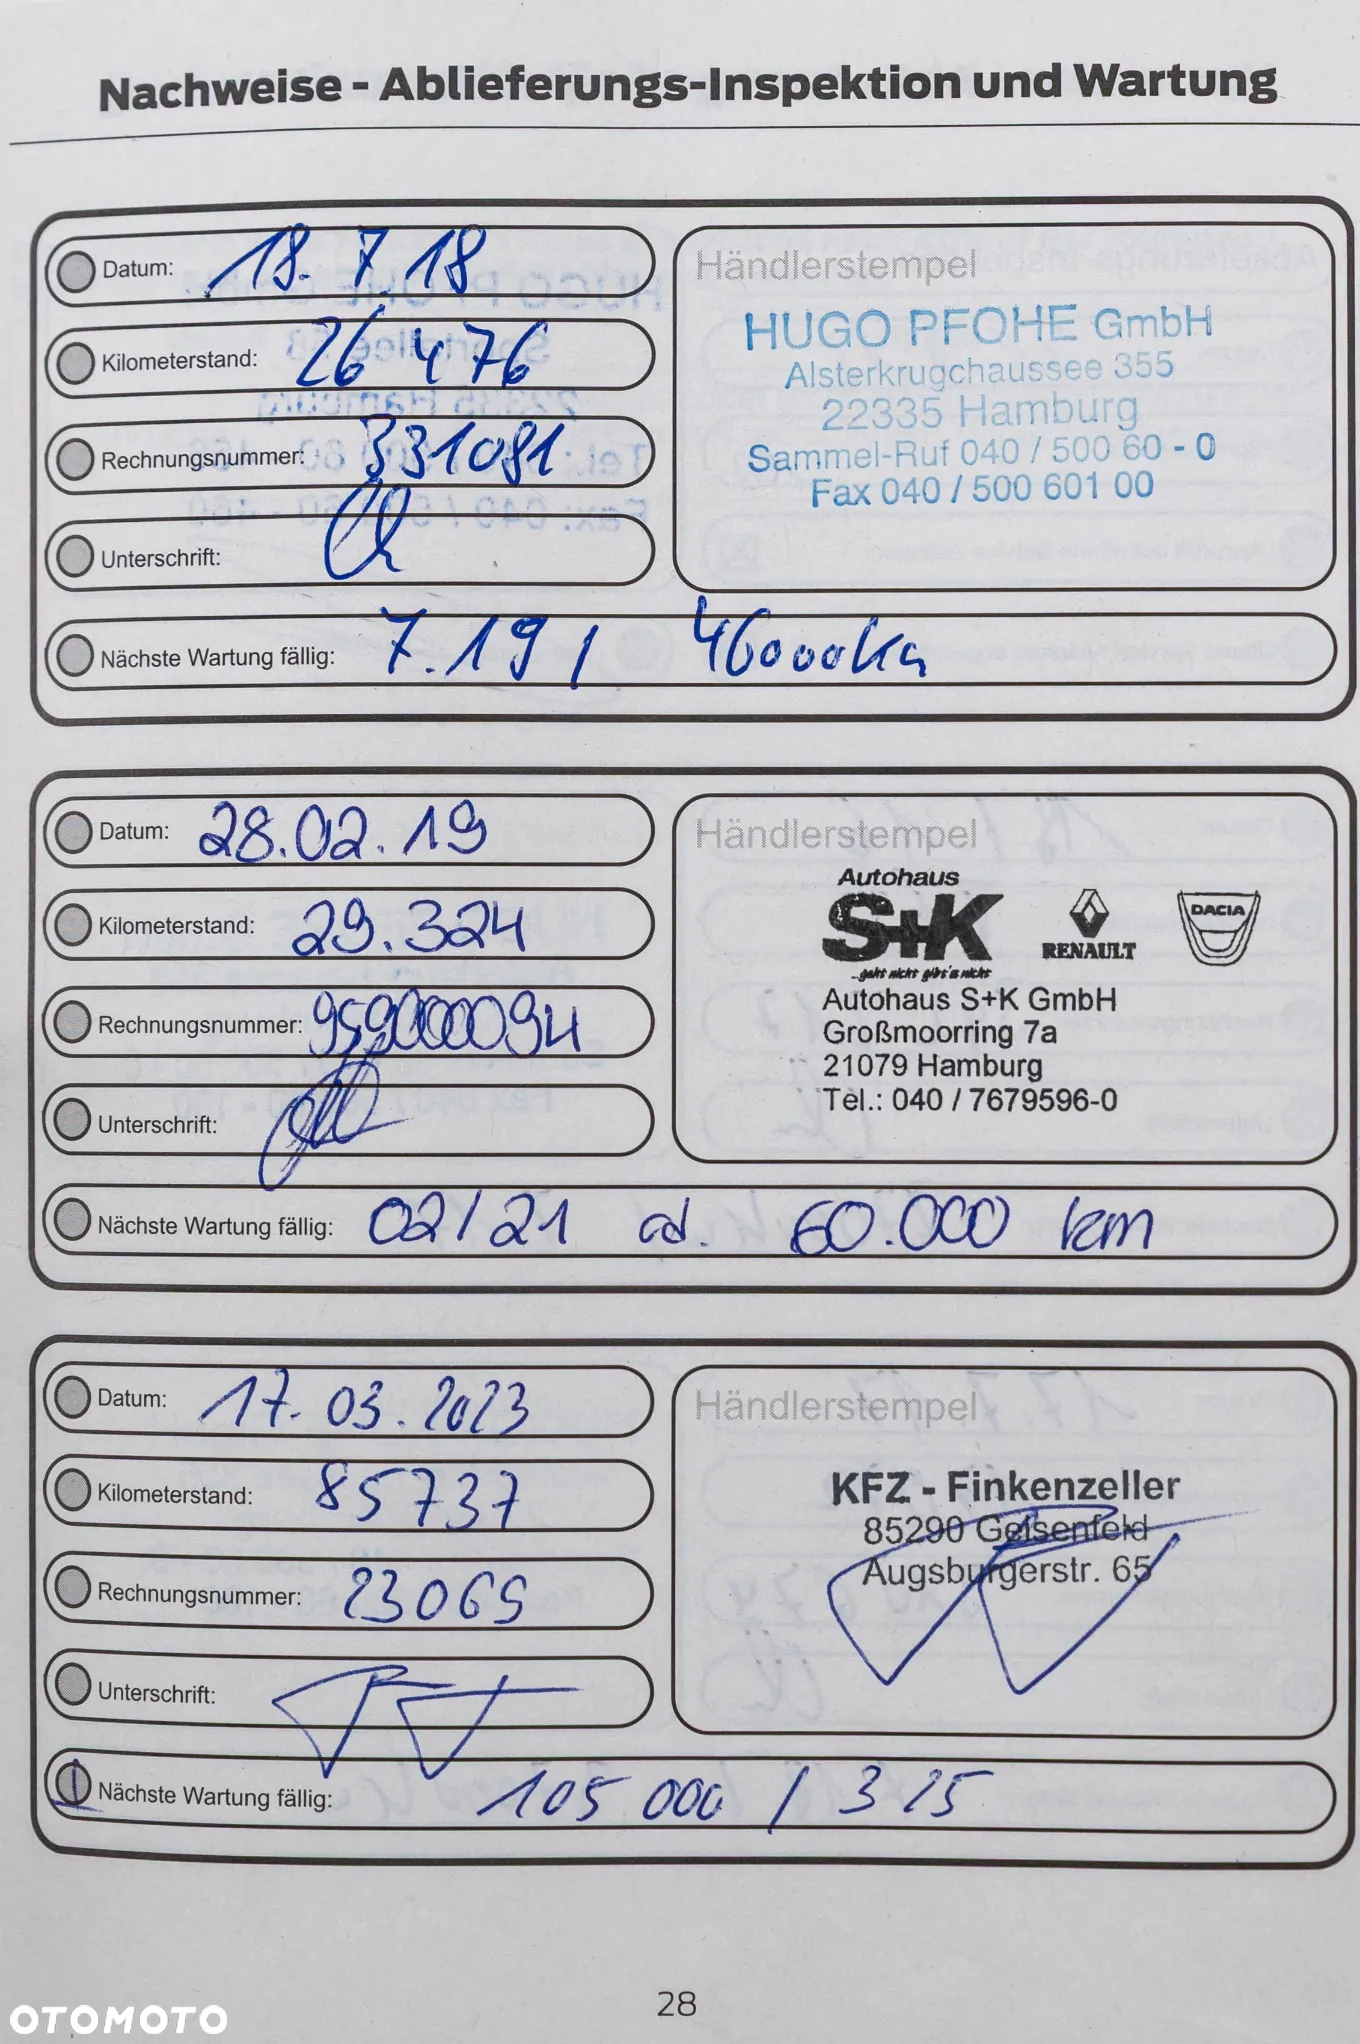 Nachweise - Ablieferungs-Inspektion und Wartung
Datum: 18. 7 18
Kilometerstand: 26 476
Rechnungsnummer: 331081
Unterschrift:
Nächste Wartung fällig: 7.19 / 46000 Km
Händlerstempel
HUGO PFOHE GmbH
Alsterkrugchaussee 355
22335 Hamburg
Sammel-Ruf 040 / 500 60 - 0
Fax 040 / 500 601 00
Datum: 28.02.19
Kilometerstand: 29.324
Rechnungsnummer: 959000094
Unterschrift:
Nächste Wartung fällig: 02/21 od. 60.000 km
Händlerstempel
Autohaus
S+K
...geht nicht gibt's nicht
RENAULT
DACIA
Autohaus S+K GmbH
Großmoorring 7a
21079 Hamburg
Tel.: 040 / 7679596-0
Datum: 17.03.2023
Kilometerstand: 85737
Rechnungsnummer: 23065
Unterschrift:
Nächste Wartung fällig: 105 000 / 3 25
Händlerstempel
KFZ - Finkenzeller
85290 Geisenfeld
Augsburgerstr. 65
28
OTOMOTO